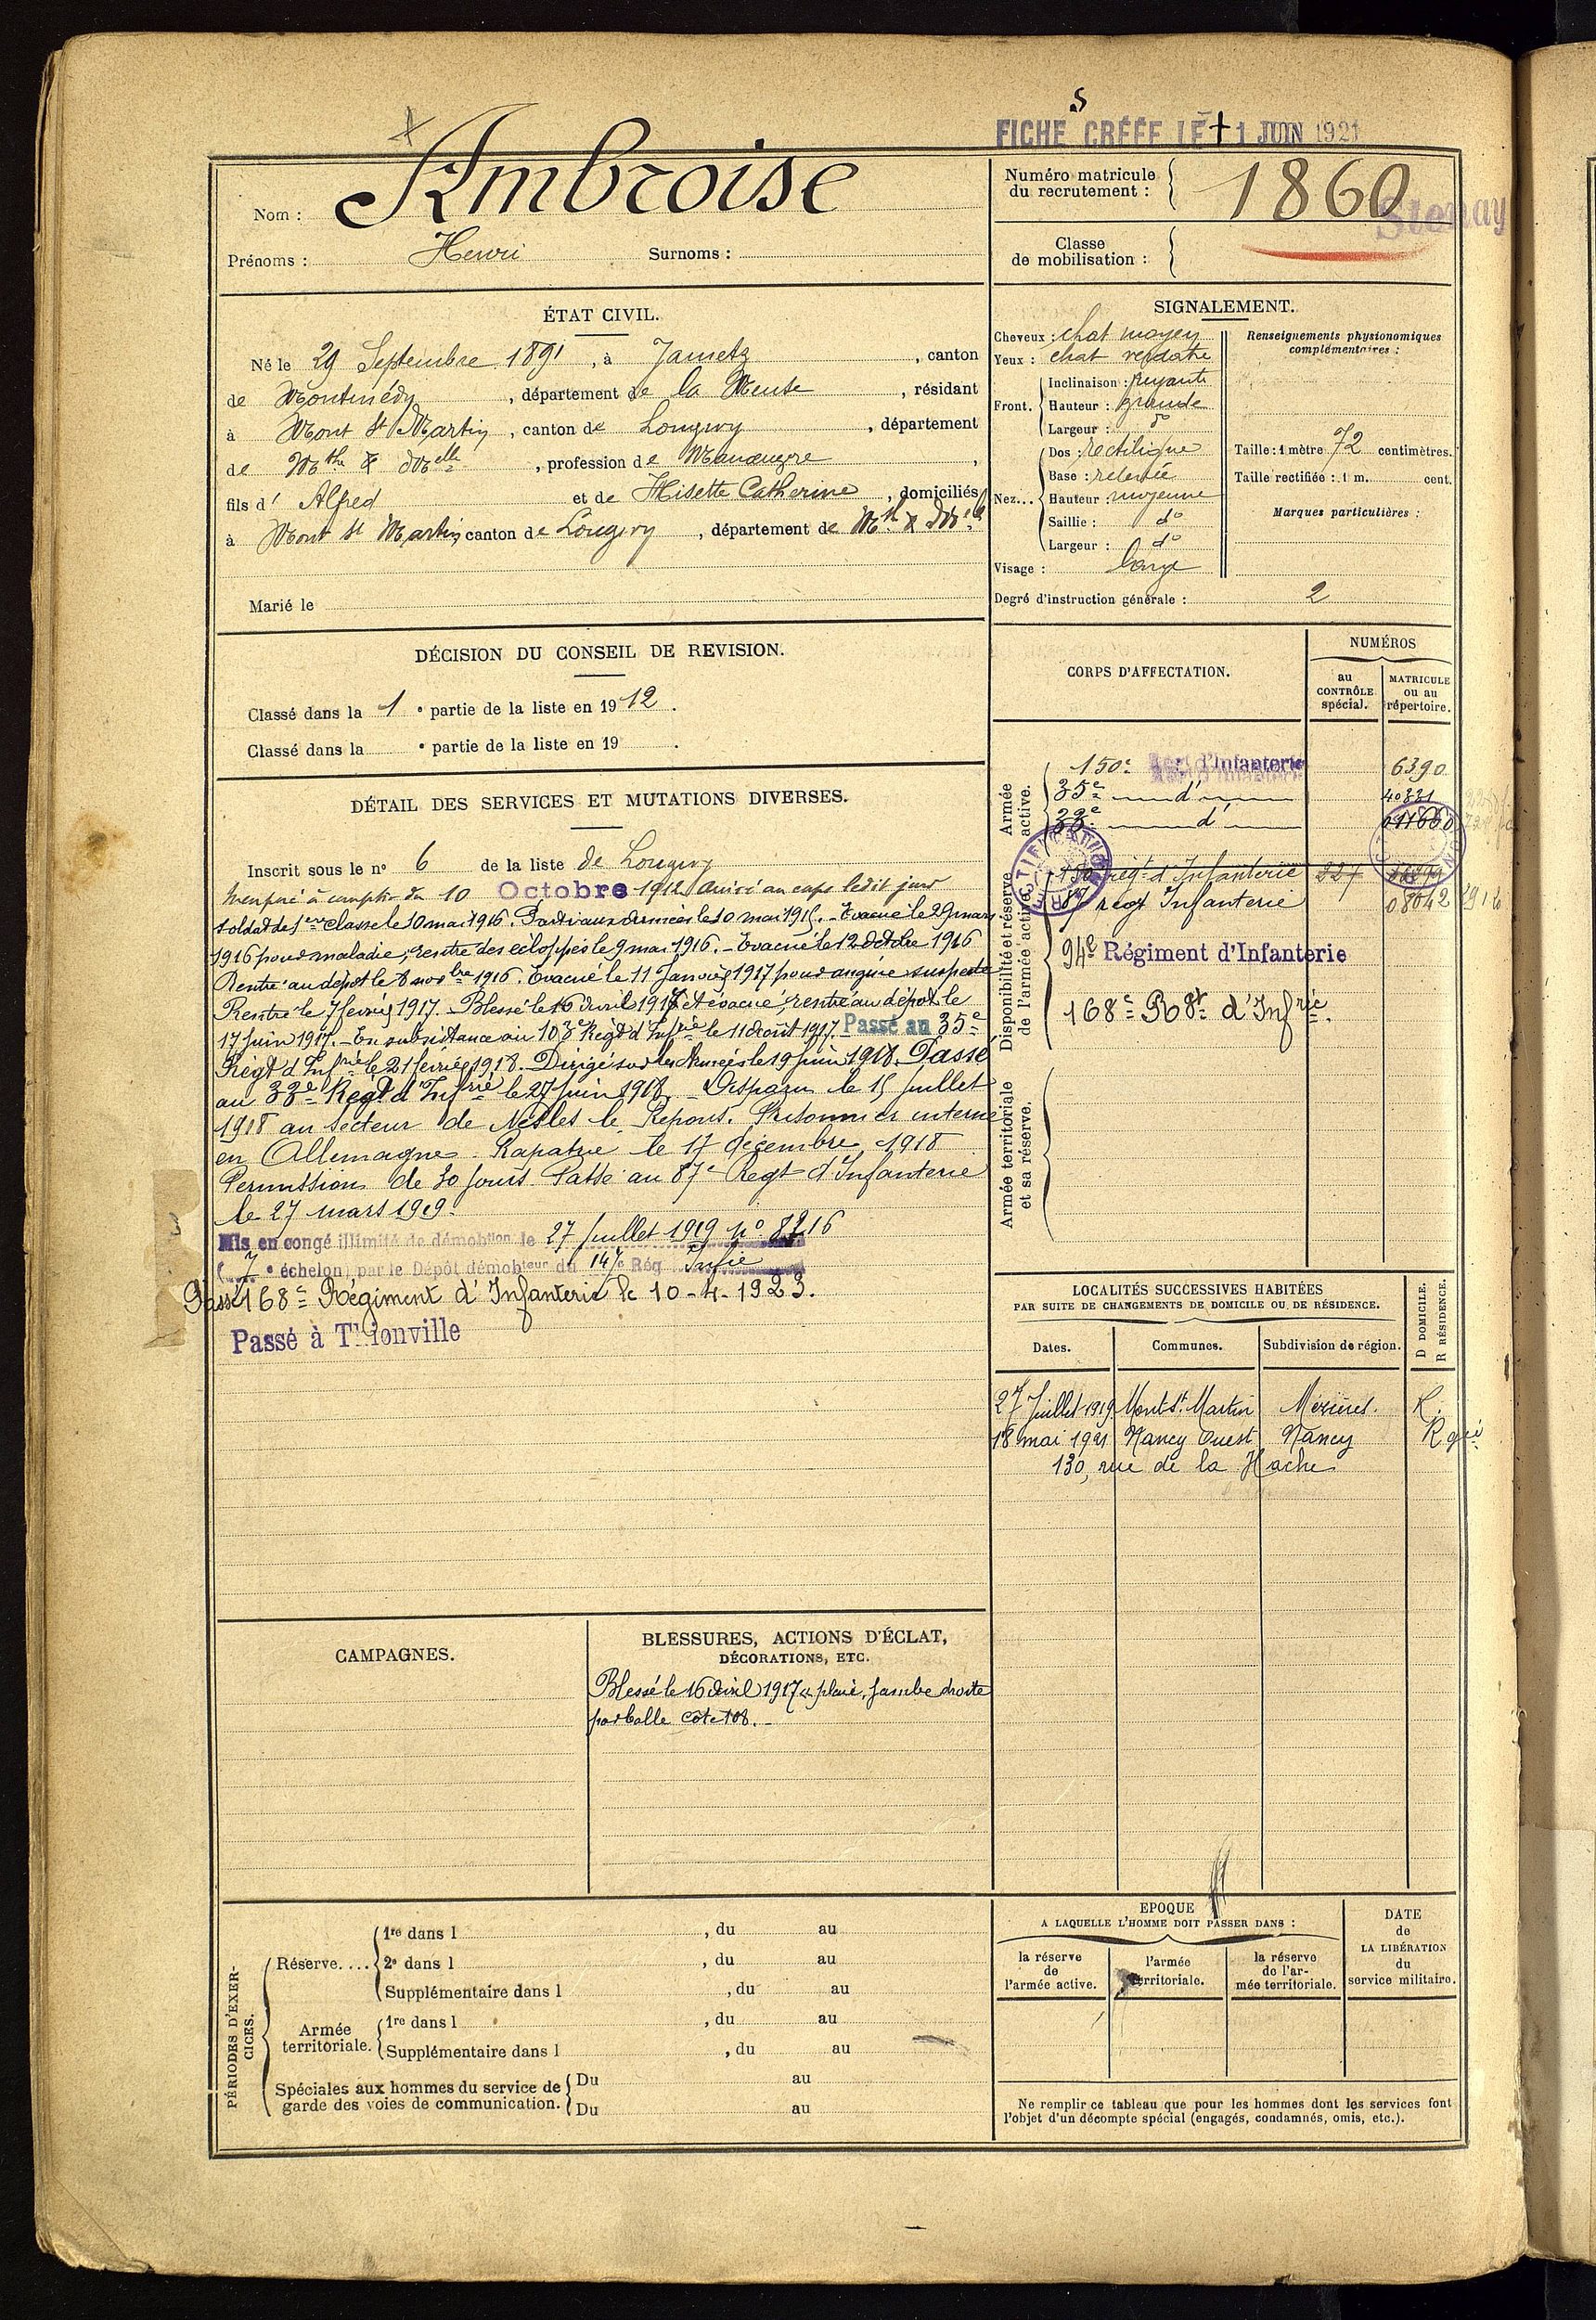 FICHE CRÉÉE LE 1 JUIN 1921
Nom : Ambroise
Prénoms : Henri Surnoms :
Numéro matricule du recrutement : 1860
Stenay
Classe de mobilisation :
ÉTAT CIVIL.
Né le 29 Septembre 1891, à Jametz, canton
de Montmédy, département de la Meuse, résidant
à Mont St Martin, canton de Longwy, département
de Mthe & Melle, profession de Manœuvre,
fils d' Alfred et de Hisette Catherine, domiciliés
à Mont St Martin canton de Longwy, département de Mthe & Melle
Marié le
SIGNALEMENT.
Cheveux : chat moyen
Yeux : chat verdatre
Front. Inclinaison : fuyante
Hauteur : grande
Largeur : do
Nez... Dos : rectiligne
Base : relevée
Hauteur : moyenne
Saillie : do
Largeur : do
Visage : large
Renseignements physionomiques complémentaires :
Taille : 1 mètre 72 centimètres.
Taille rectifiée : 1 m. cent.
Marques particulières :
Degré d'instruction générale : 2
DÉCISION DU CONSEIL DE REVISION.
Classé dans la 1 e partie de la liste en 1912.
Classé dans la e partie de la liste en 19 .
DÉTAIL DES SERVICES ET MUTATIONS DIVERSES.
Inscrit sous le no 6 de la liste de Longwy
à compter du 10 Octobre 1912 arrivé au corps ledit jour
soldat de 1ere classe le 10 mai 1916. Parti aux armées le 10 mai 1915. - Evacué le 29 mars
1916 pour maladie, rentré des éclopés le 9 mai 1916. - Evacué le 12 octobre 1916
Rentré au dépôt le 8 novbre 1916. Evacué le 11 Janvier 1917 pour angine suspecte
Rentré le 7 février 1917. Blessé le 16 Avril 1917 et évacué, rentré au dépôt le
17 juin 1917. - En subsistance au 103e Régt d'Infrie le 11 août 1917. Passé au 35e
Régt d'Infrie le 21 février 1918. Dirigé sur les Armées le 19 Juin 1918. Passé
au 33e Régt d'Infrie le 27 Juin 1918. Disparu le 15 Juillet
1918 au secteur de Nesles le Repons. Prisonnier interné
en Allemagne. Rapatrié le 17 décembre 1918
Permission de 30 jours. Passé au 87e Régt d'Infanterie
le 27 mars 1919.
Mis en congé illimité de démobtion le 27 Juillet 1919 No 8216
(7e échelon) par le Dépôt démobteur du 147e Rég Infie
Passé 168e Régiment d'Infanterie le 10-4-1923.
Passé à Thionville
CORPS D'AFFECTATION.
NUMÉROS
au CONTRÔLE spécial.
MATRICULE ou au répertoire.
Armée active.
150e Régt d'Infanterie 6390
35e d° 40331
33e d° 011660
Disponibilité et réserve de l'armée active.
150 régt d'Infanterie 227
87 régt Infanterie 08642
94e Régiment d'Infanterie
168e Rgt d'Infrie.
Armée territoriale et sa réserve.
LOCALITÉS SUCCESSIVES HABITÉES
PAR SUITE DE CHANGEMENTS DE DOMICILE OU DE RÉSIDENCE.
Dates. Communes. Subdivision de région. D DOMICILE. R RÉSIDENCE.
27 Juillet 1919 Mont St. Martin Mézières. R.
18 mai 1921 Nancy Ouest Nancy R
130, rue de la Hache
CAMPAGNES.
BLESSURES, ACTIONS D'ÉCLAT,
DÉCORATIONS, ETC.
Blessé le 16 Avril 1917 plaie, jambe droite
par balle cote 108. -
PÉRIODES D'EXERCICES.
Réserve.... 1re dans l , du au
2e dans l , du au
Supplémentaire dans l , du au
Armée territoriale. 1re dans l , du au
Supplémentaire dans l , du au
Spéciales aux hommes du service de garde des voies de communication. Du au
Du au
EPOQUE
A LAQUELLE L'HOMME DOIT PASSER DANS :
la réserve de l'armée active.
l'armée territoriale.
la réserve de l'armée territoriale.
DATE de LA LIBÉRATION du service militaire.
Ne remplir ce tableau que pour les hommes dont les services font
l'objet d'un décompte spécial (engagés, condamnés, omis, etc.).